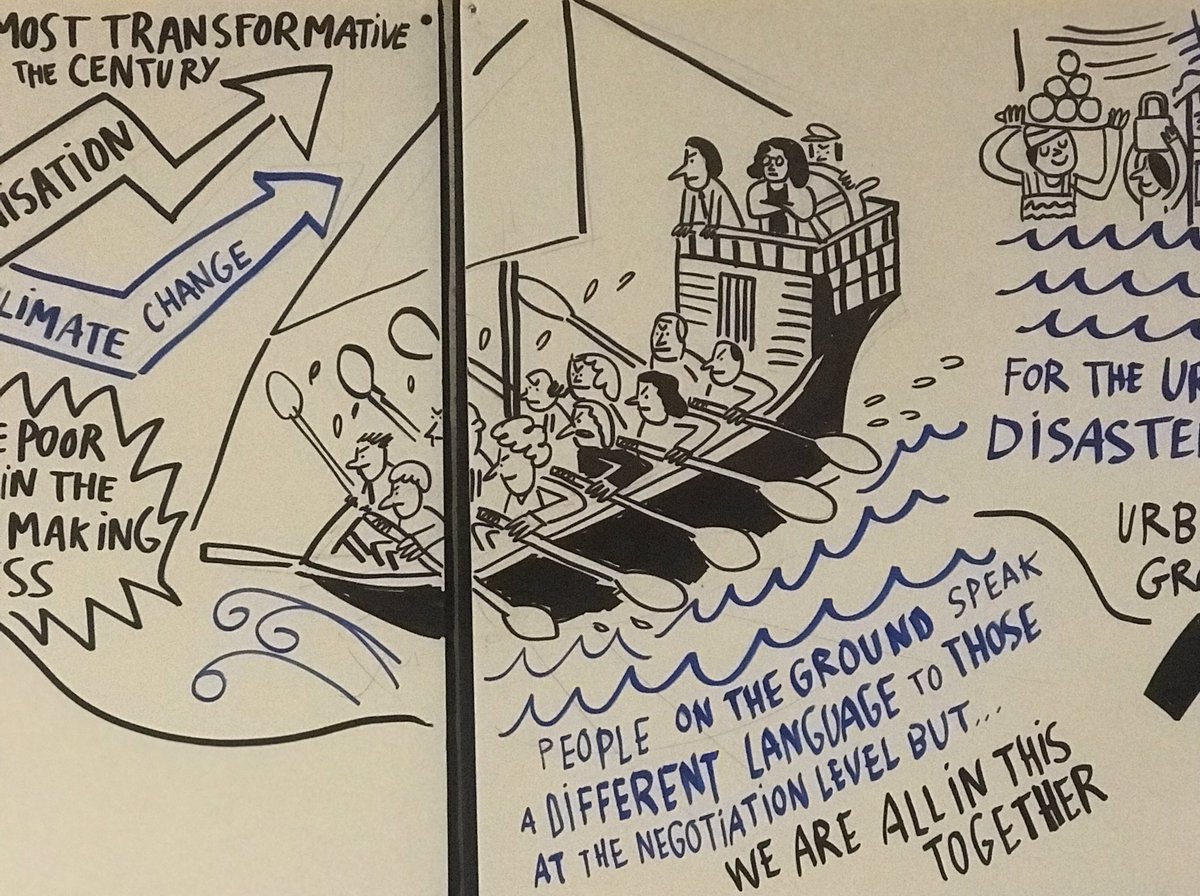 MOST TRANSFORMATIVE
THE CENTURY
ISATION
CLIMATE CHANGE
POOR
IN THE
MAKING
SS
PEOPLE ON THE GROUND SPEAK
A DIFFERENT LANGUAGE TO THOSE
AT THE NEGOTIATION LEVEL BUT...
WE ARE ALL IN THIS
TOGETHER
FOR THE UR
DISASTE
URB
GRO